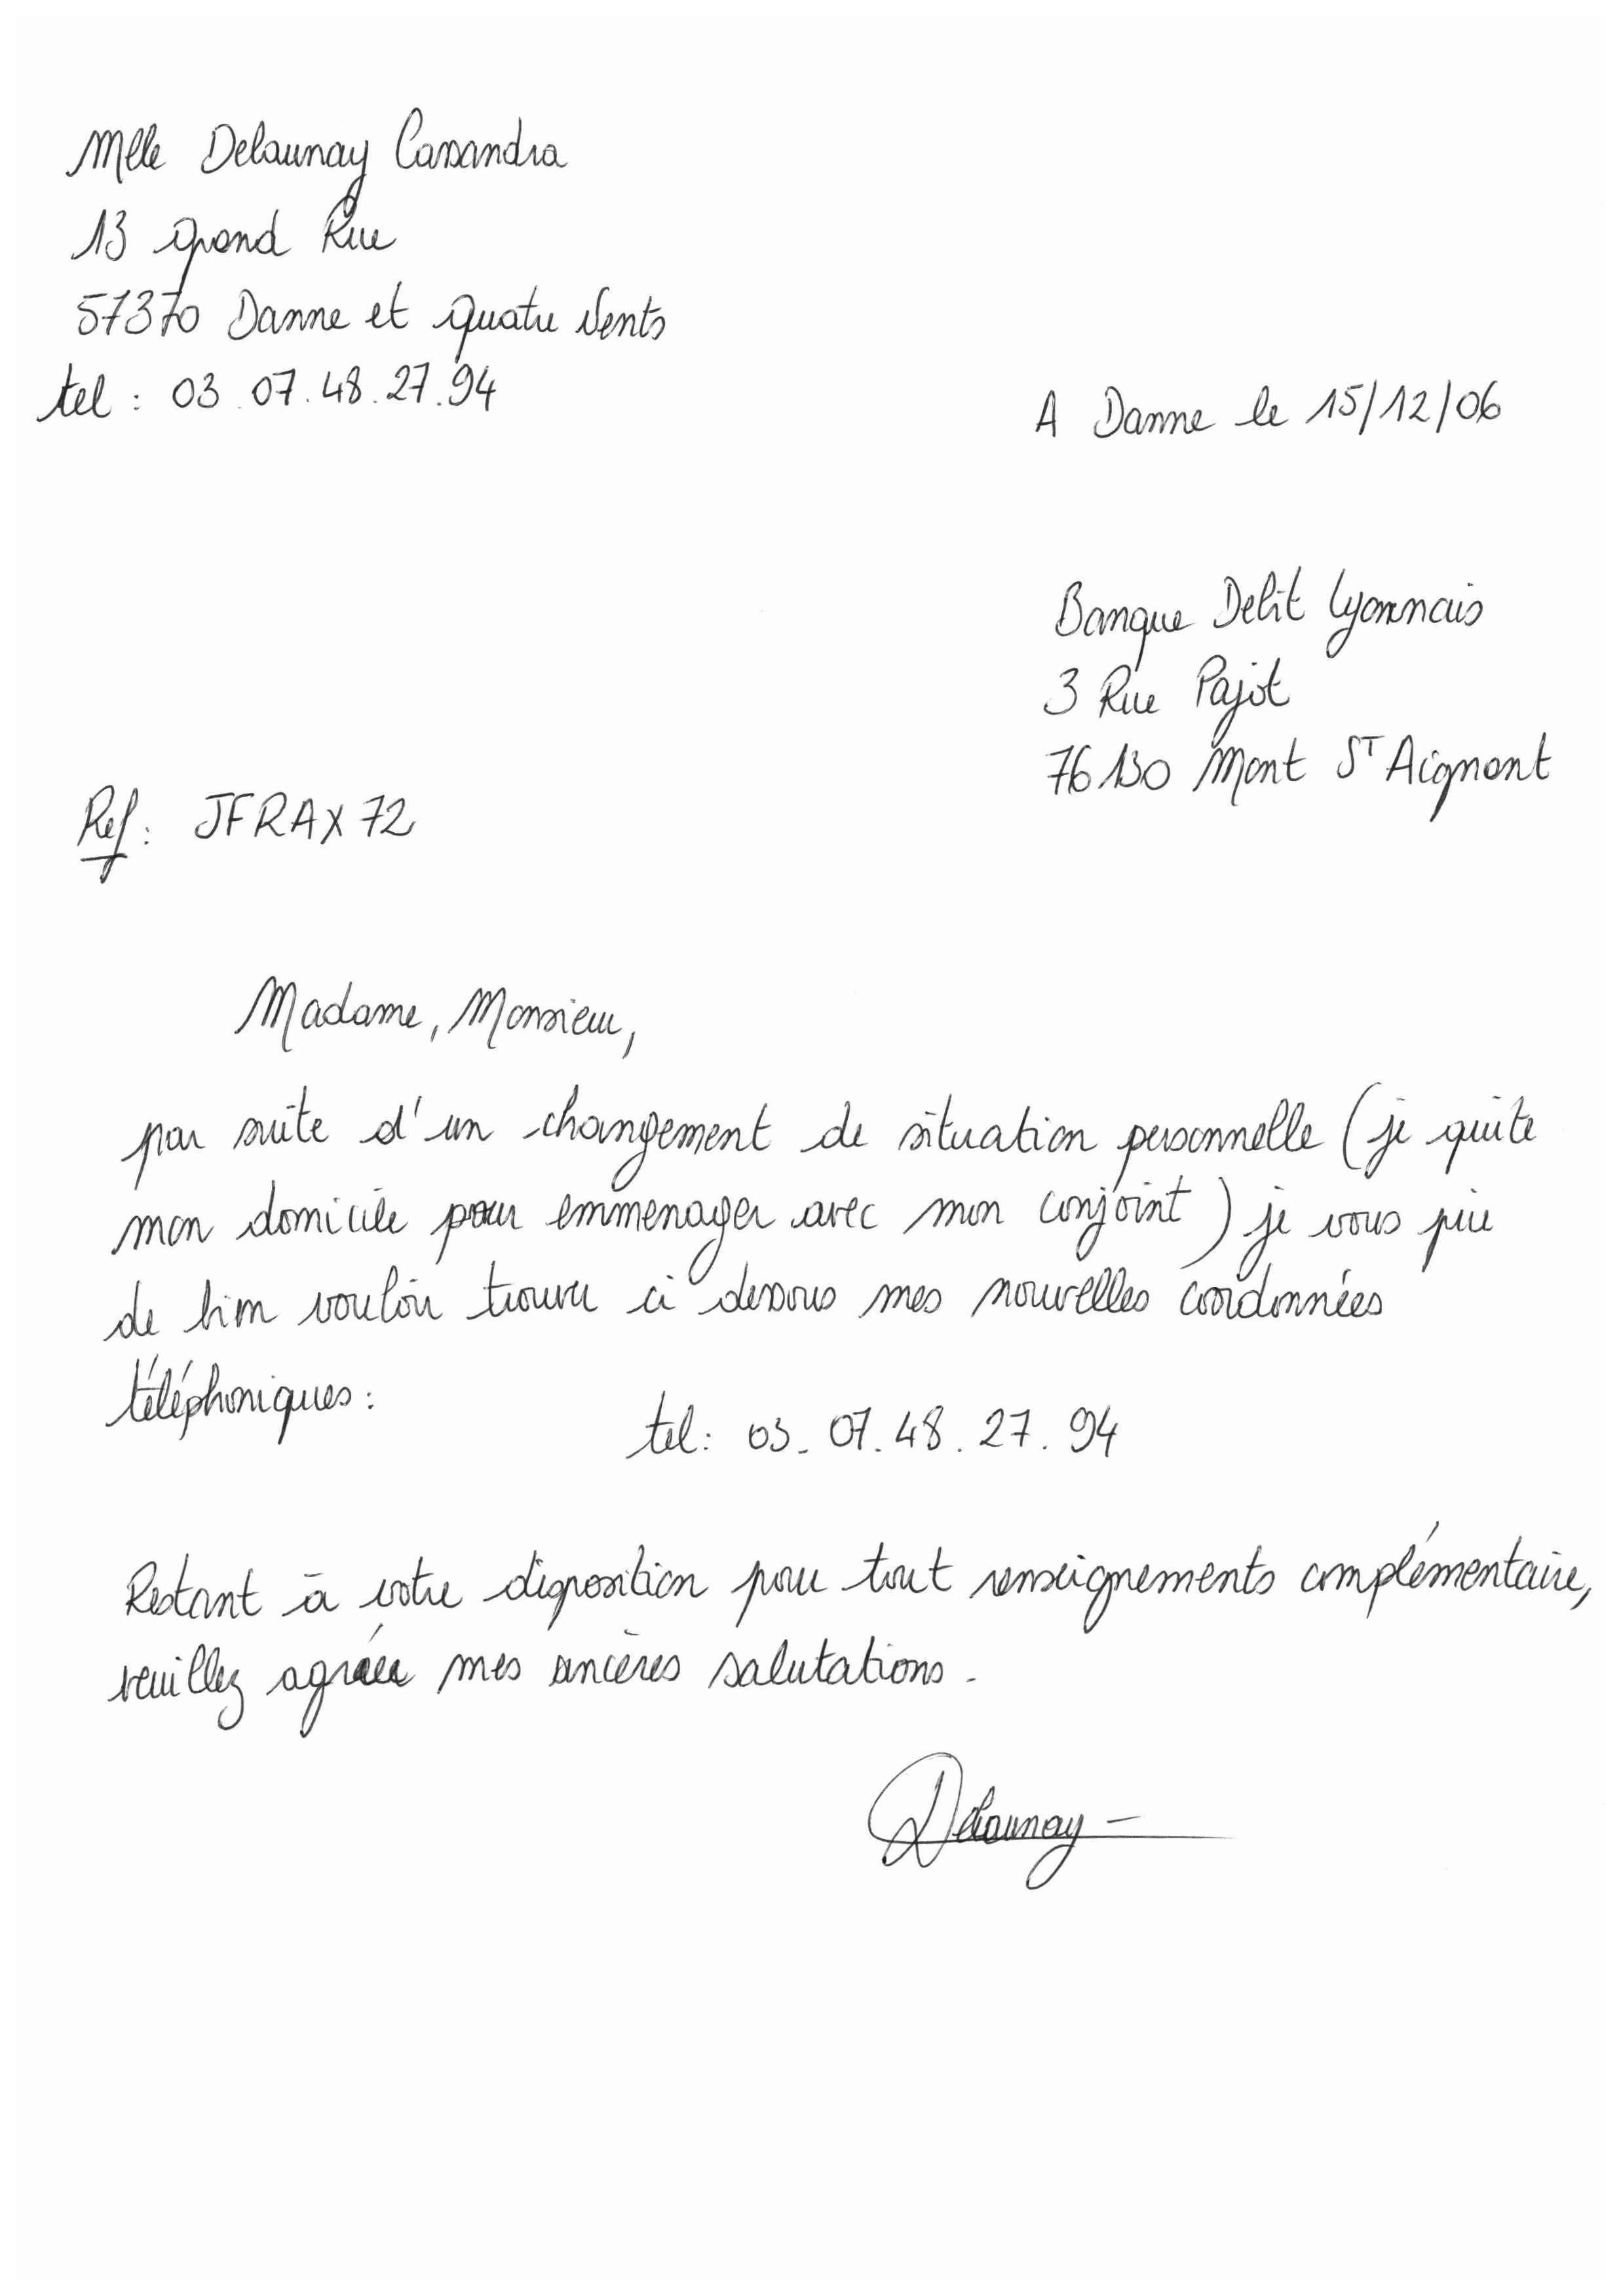 Mlle Delaunay Cassandra
13 grand Rue
57370 Danne et quatre Vents
tel : 03.07.48.27.94
A Danne le 15/12/06
Banque Debit Lyonnais
3 Rue Pajot
76130 Mont ST Aignant
Ref : JFRAX72
Madame, Monsieur,
par suite d'un changement de situation personnelle (je quite
mon domicile pour emmenager avec mon conjoint) je vous prie
de bien vouloir trouver ci dessous mes nouvelles coordonnées
téléphoniques :
tel : 03.07.48.27.94
Restant à votre disposition pour tout renseignements complémentaire,
veuillez agréer mes sincères salutations.
Delaunay